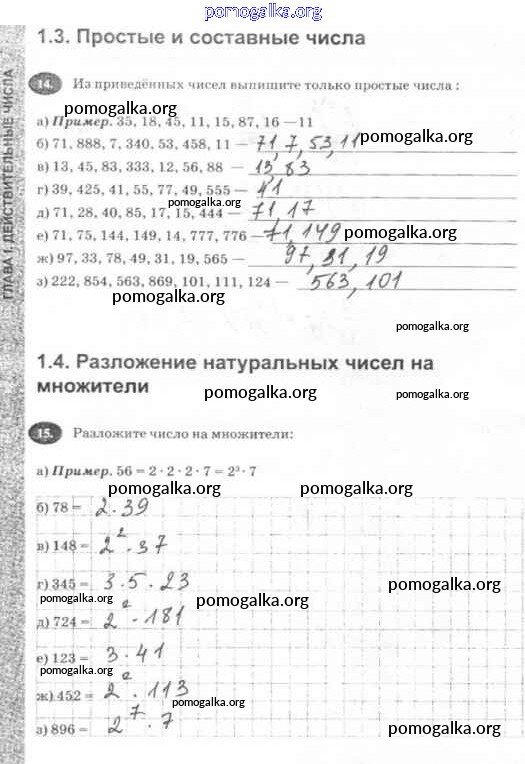 pomogalka.org
1.3. Простые и составные числа
14. Из приведённых чисел выпишите только простые числа :
pomogalka.org
а) Пример. 35, 18, 45, 11, 15, 87, 16 — 11
б) 71, 888, 7, 340, 53, 458, 11 — 71, 7, 53, 11
pomogalka.org
в) 13, 45, 83, 333, 12, 56, 88 — 13, 83
г) 39, 425, 41, 55, 77, 49, 555 — 41
pomogalka.org
д) 71, 28, 40, 85, 17, 15, 444 — 71, 17
е) 71, 75, 144, 149, 14, 777, 776 — 71, 149
pomogalka.org
ж) 97, 33, 78, 49, 31, 19, 565 — 97, 31, 19
з) 222, 854, 563, 869, 101, 111, 124 — 563, 101
pomogalka.org
pomogalka.org
1.4. Разложение натуральных чисел на
множители
pomogalka.org
pomogalka.org
15. Разложите число на множители:
а) Пример. 56 = 2 · 2 · 2 · 7 = 2³ · 7
pomogalka.org
pomogalka.org
б) 78 = 2 · 39
в) 148 = 2² · 37
г) 345 = 3 · 5 · 23
pomogalka.org
pomogalka.org
pomogalka.org
д) 724 = 2² · 181
е) 123 = 3 · 41
pomogalka.org
ж) 452 = 2² · 113
pomogalka.org
з) 896 = 2⁷ · 7
pomogalka.org
ГЛАВА I. ДЕЙСТВИТЕЛЬНЫЕ ЧИСЛА